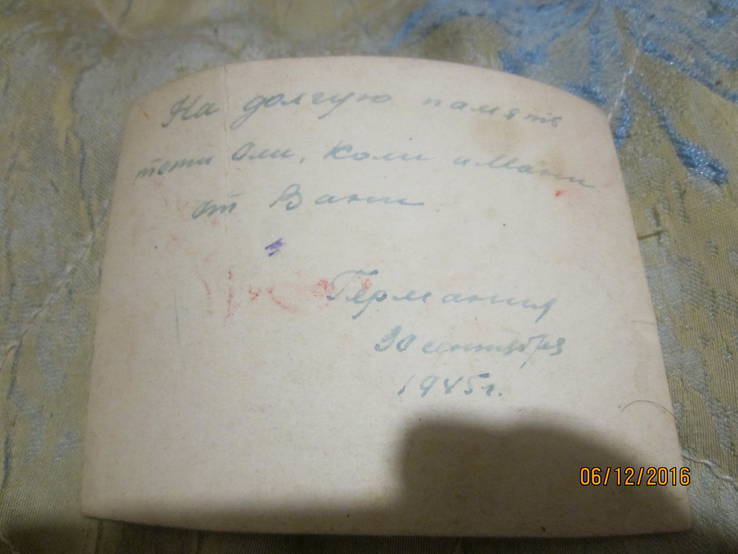 На долгую память
тети Оли, Коли и Мани
от Вани
Германия
30 сентября
1945 г.
06/12/2016